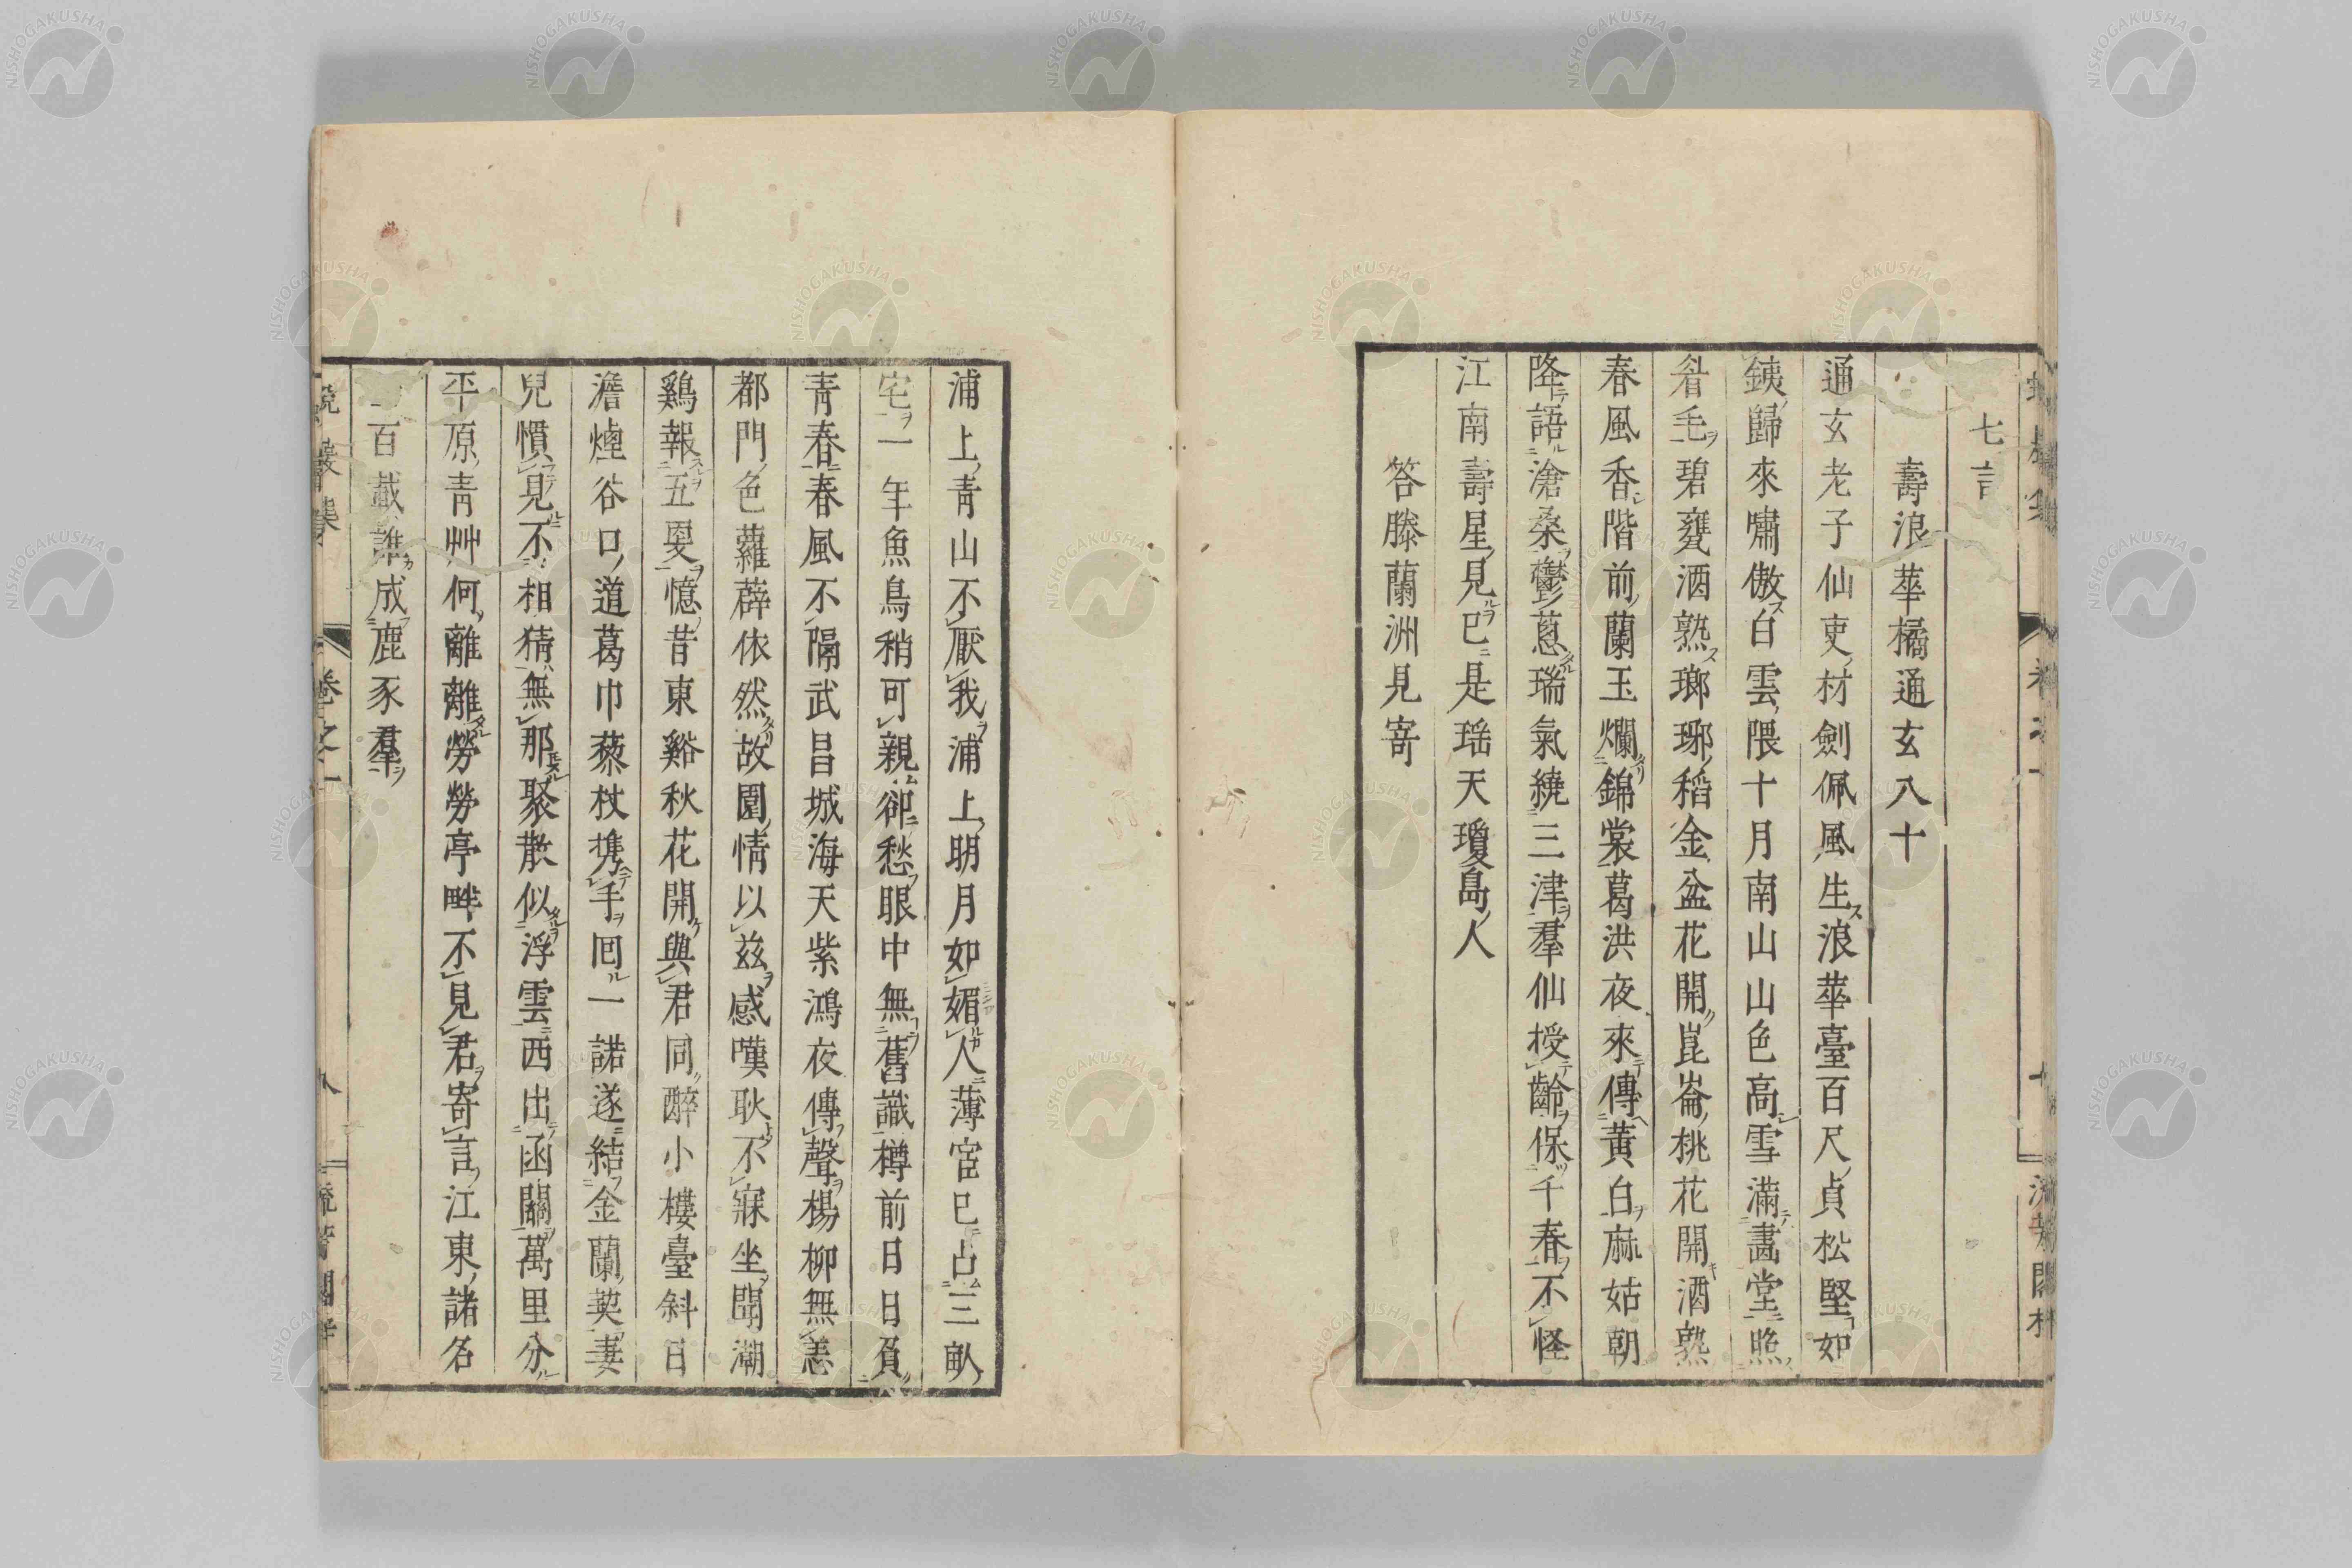 七言
壽浪華橘通玄八十
通玄老子仙吏材劍佩風生浪華臺百尺貞松堅如
銕歸來嘯傲白雲隈十月南山山色高雪滿畵堂照
眉毛碧甕酒熟瑯琊稻金盆花開崑崙桃花開酒熟
春風香階前蘭玉爛錦裳葛洪夜來傳黃白麻姑朝
降語滄桑鬱蔥瑞氣繞三津羣仙授齡保千春不怪
江南壽星見已是瑶天瓊島人
答滕蘭洲見寄
浦上青山不厭我浦上明月如媚人薄宦已占三畝
宅一年魚鳥稍可親卻愁眼中無舊識樽前日日負
青春春風不隔武昌城海天紫鴻夜傳聲楊柳無恙
都門色蘿薜依然故園情以茲感嘆耿不寐坐聞潮
鷄報五更憶昔東谿秋花開與君同醉小樓臺斜日
澹煙谷口道葛巾藜杖携手回一諾遂結金蘭契妻
兒慣見不相猜無那聚散似浮雲西出函關萬里分
平原青艸何離離勞勞亭畔不見君寄言江東諸名
百載誰成鹿豕羣
卷之一
八